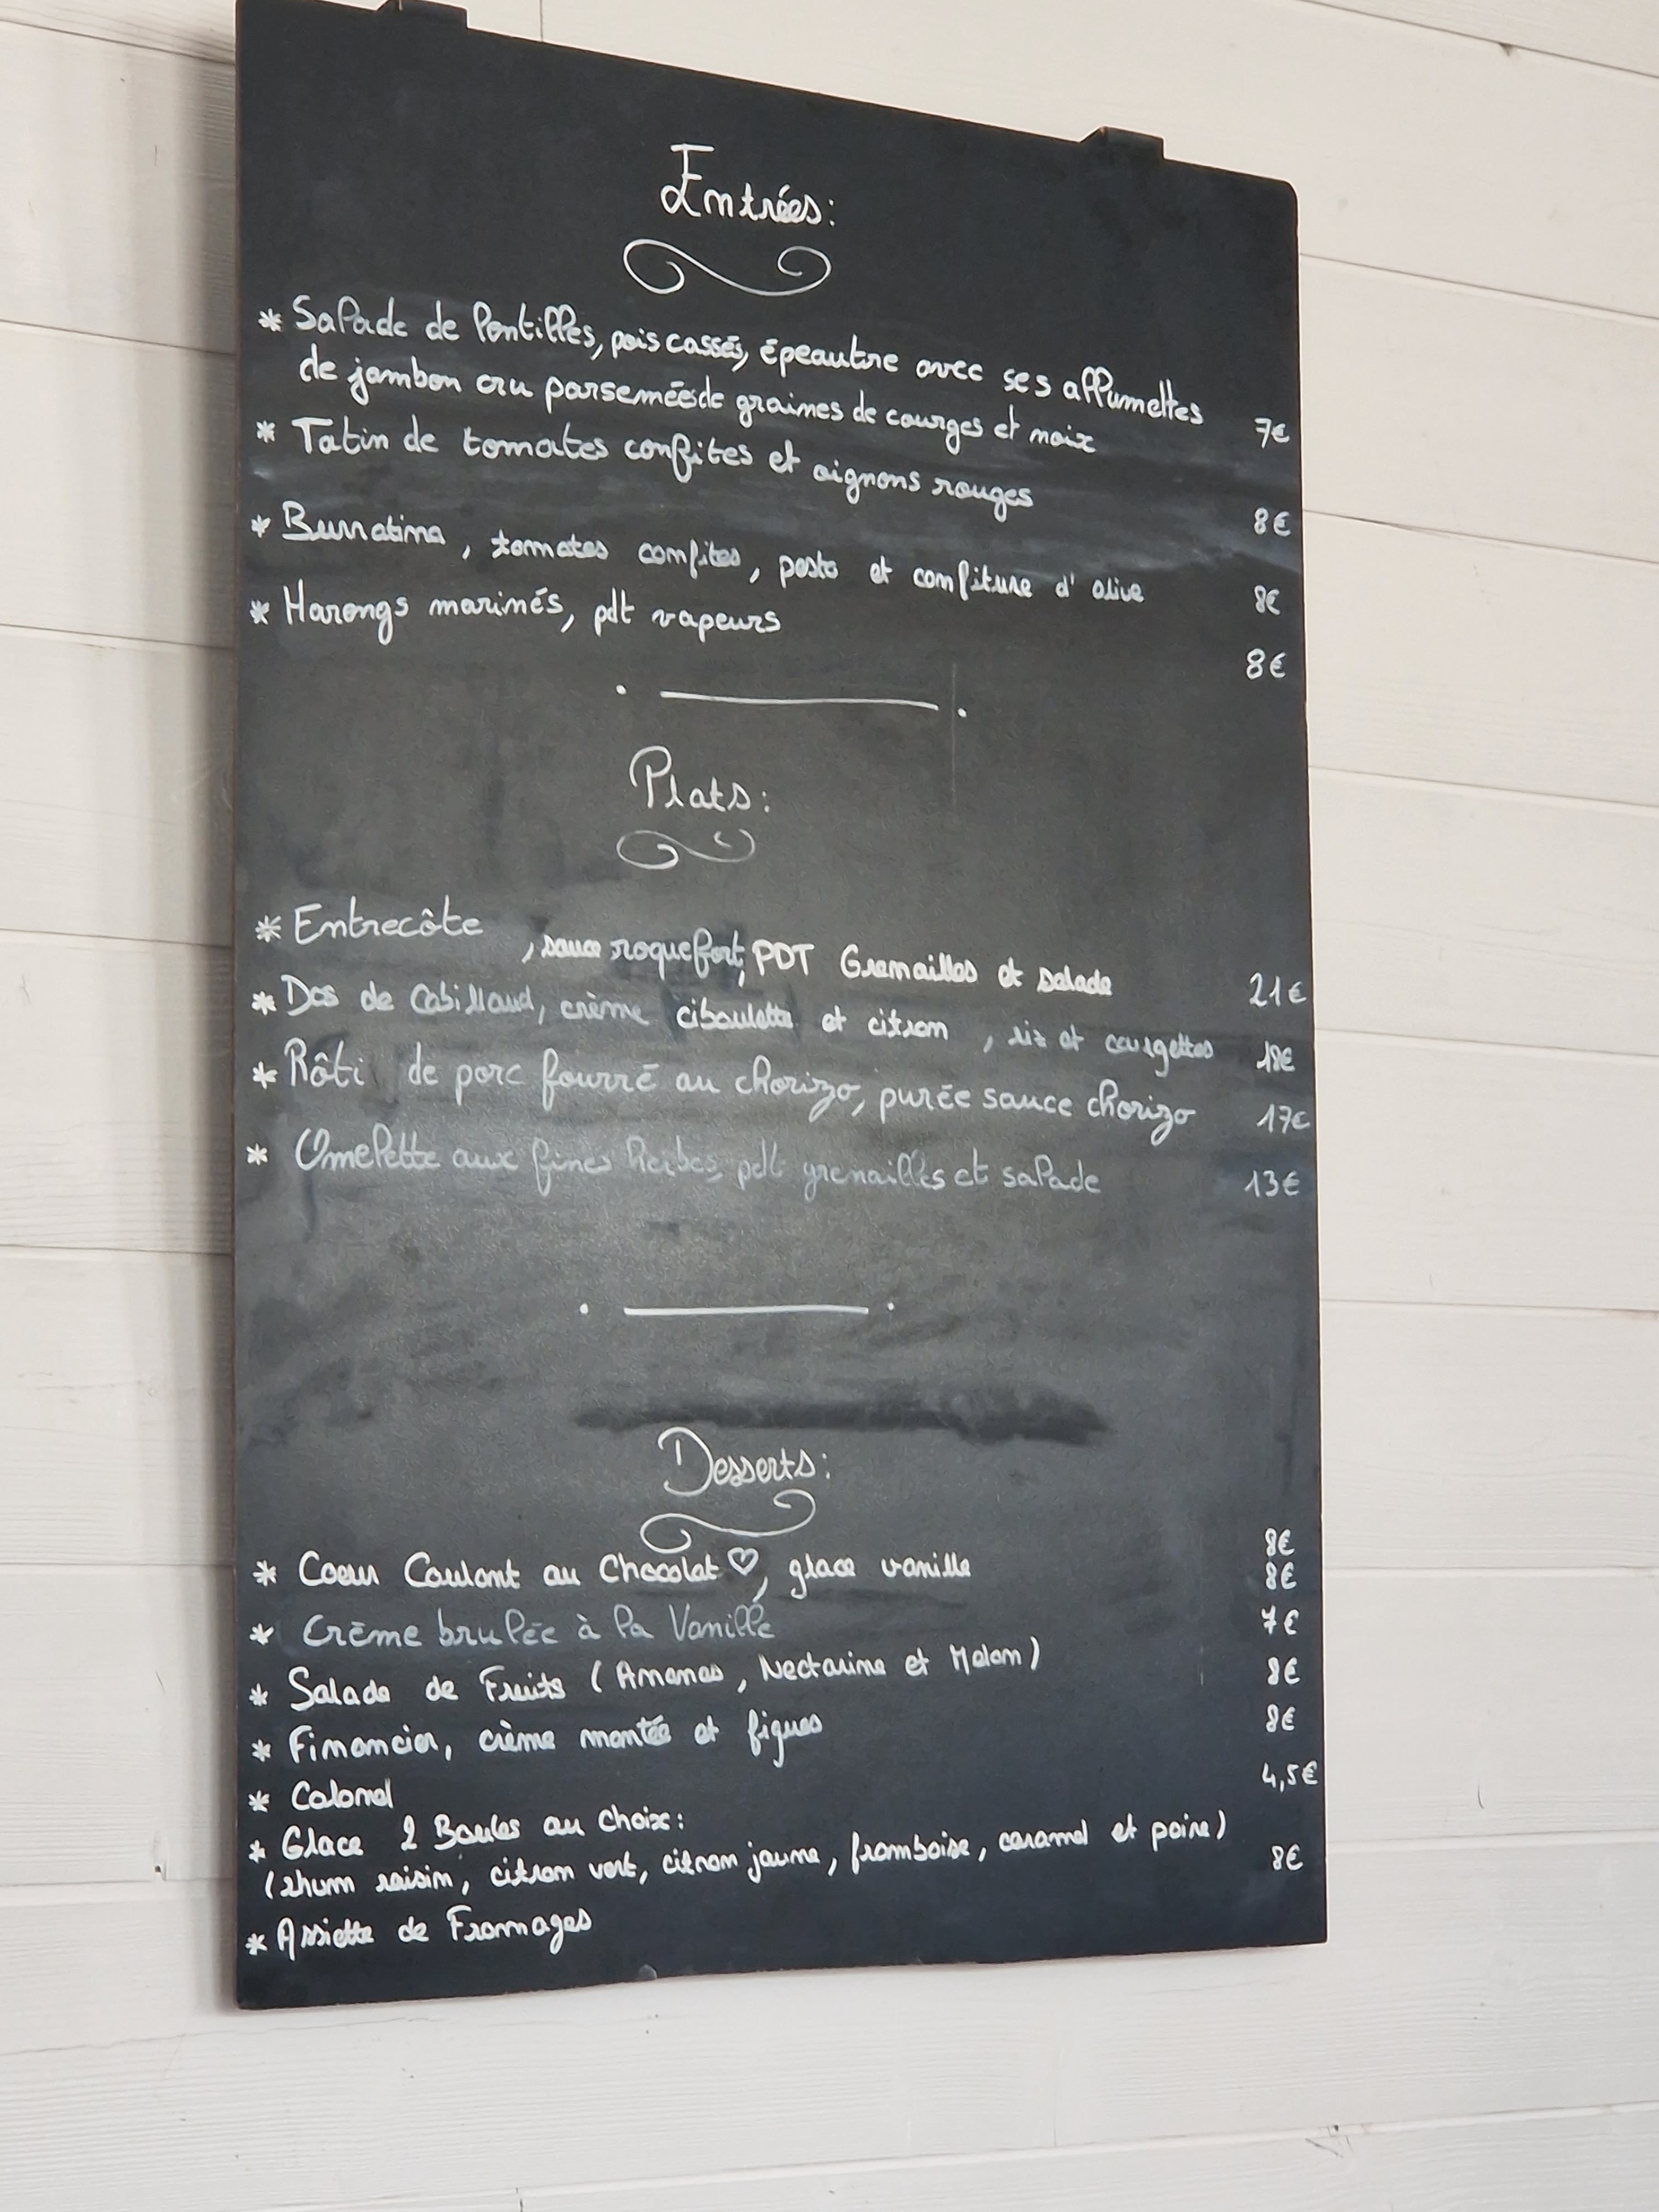 Entrées:
* Salade de lentilles, pois cassés, épeautre avec ses allumettes
de jambon cru parseméesde graines de courges et noix 7€
* Tatin de tomates confites et oignons rouges 8€
* Burratina, tomates confites, pesto et confiture d'olive 8€
* Harengs marinés, pdt vapeurs 8€
Plats:
* Entrecôte , sauce roquefort, PDT Grenailles et salade 21€
* Dos de Cabillaud, crème ciboulette et citron , riz et courgettes 18€
* Rôti de porc fourré au chorizo, purée sauce chorizo 17€
* Omelette aux fines herbes, pdt grenailles et salade 13€
Desserts:
* Coeur Coulant au Chocolat ♡, glace vanille 8€
* Crème brulée à la Vanille 8€
* Salade de Fruits (Ananas, Nectarine et Melon) 7€
* Financier, crème montée et figues 8€
* Colonel 8€
* Glace 2 Boules au Choix: 4,5€
(rhum raisin, citron vert, citron jaune, framboise, caramel et poire)
* Assiette de Fromages 8€